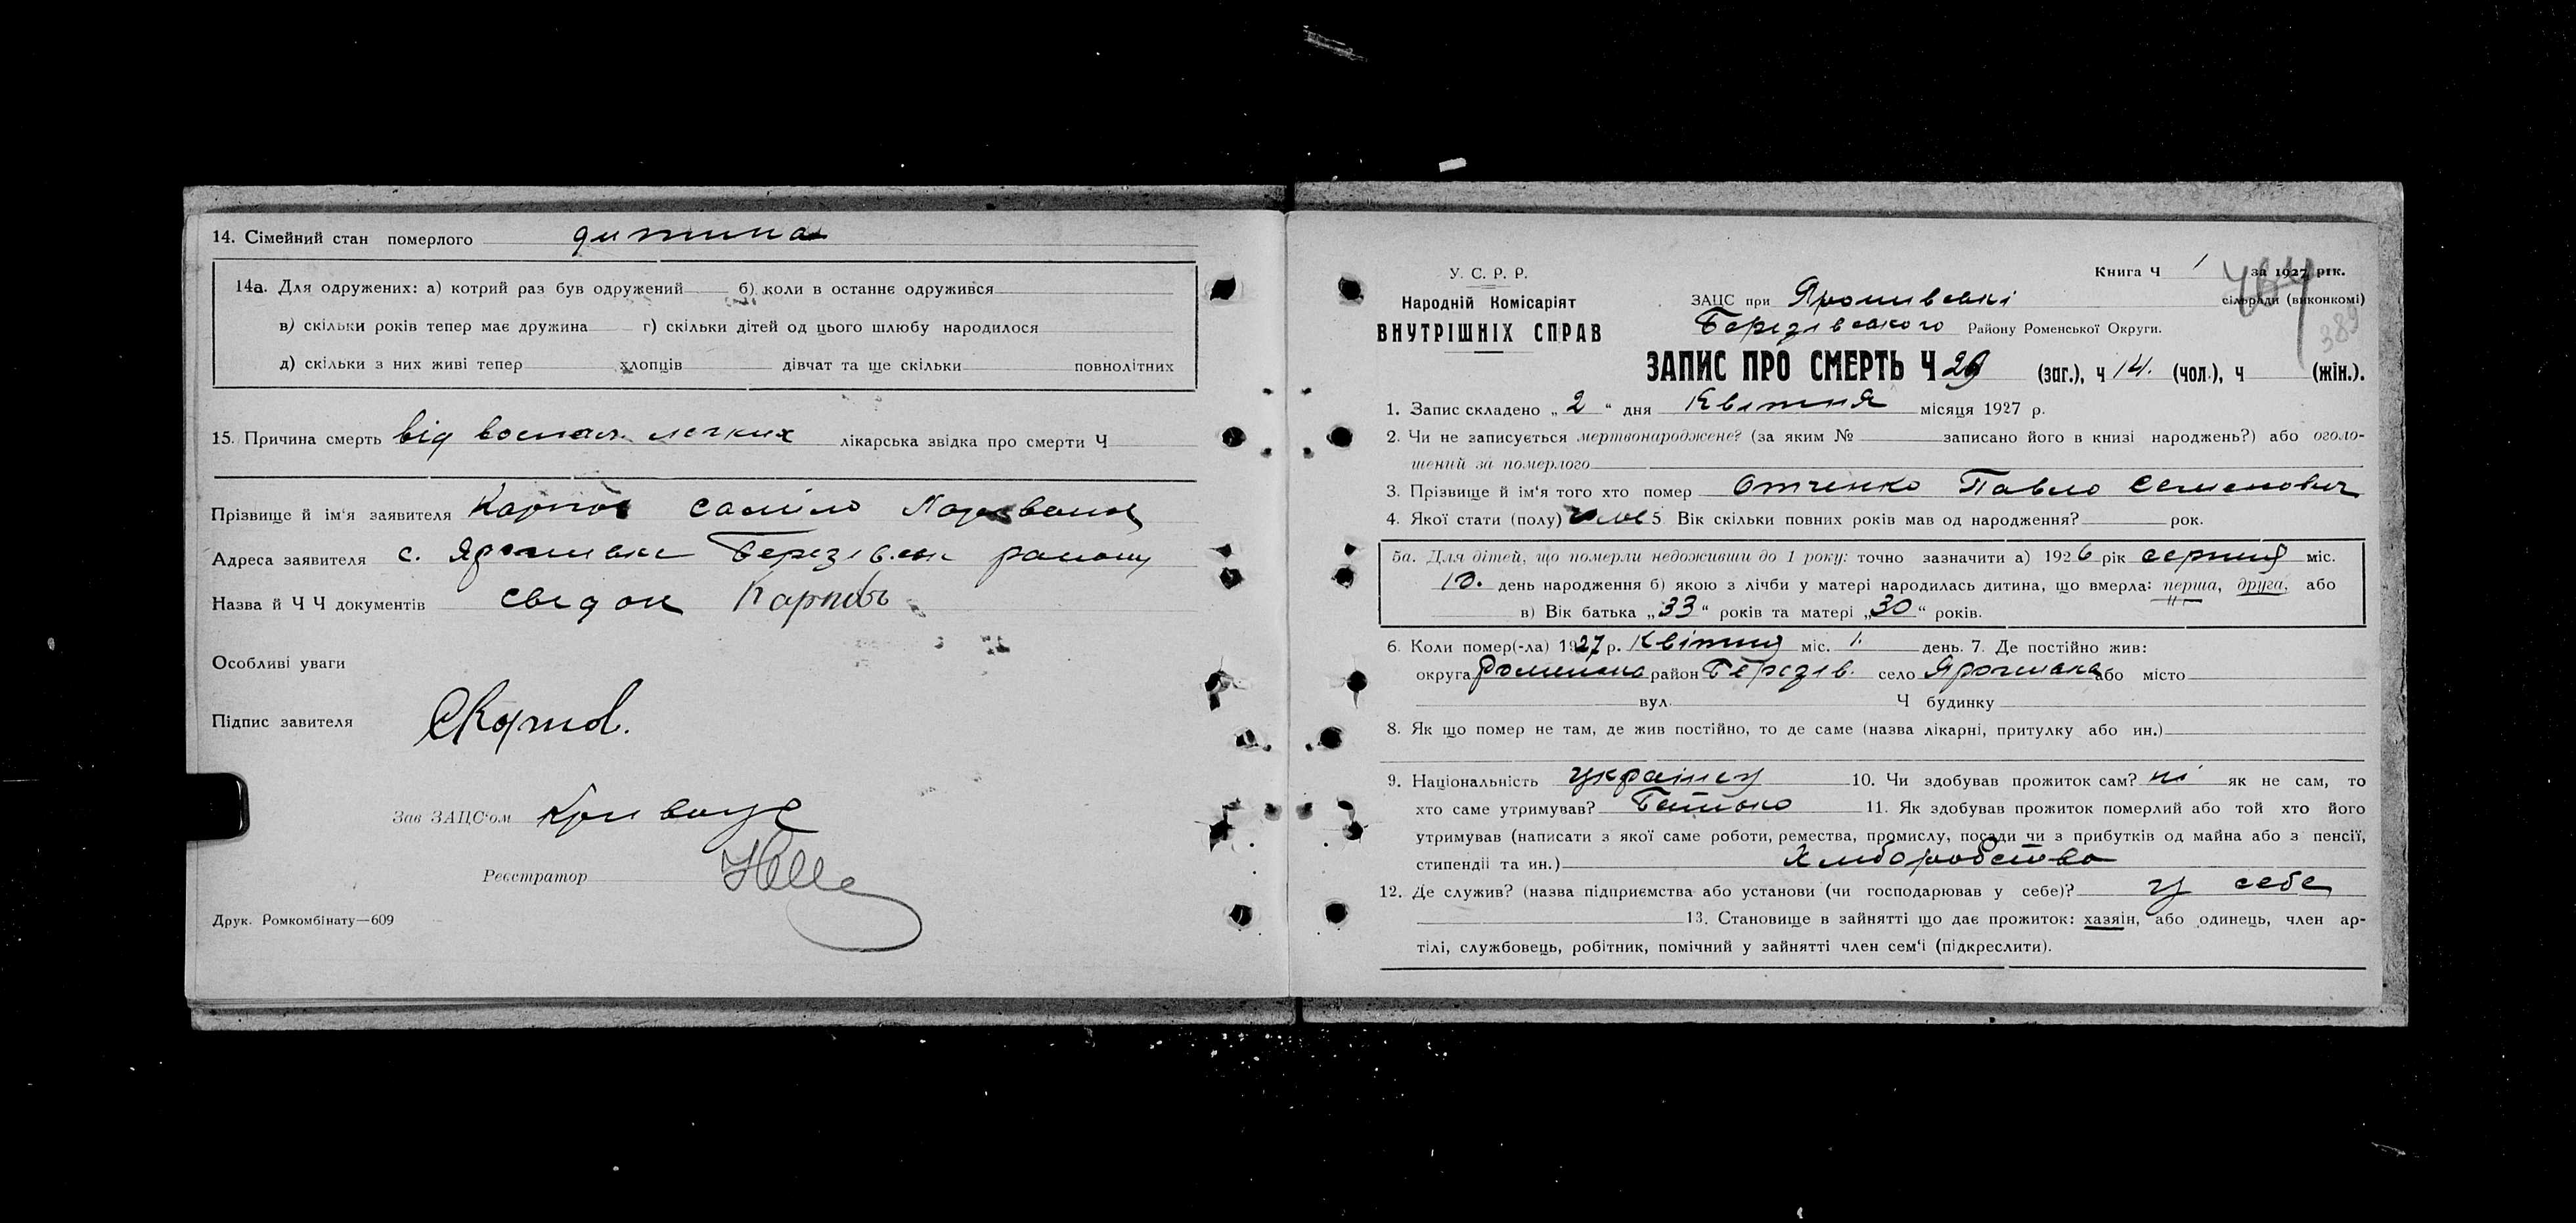 14. Сімейний стан померлого дитина
14а. Для одружених: а) котрий раз був одружений б) коли в останнє одружився
в) скільки років тепер має дружина г) скільки дітей од цього шлюбу народилося
д) скільки з них живі тепер хлопців дівчат та ще скільки повнолітних
15. Причина смерть від воспал. легких лікарська звідка про смерти Ч
Прізвище й ім'я заявителя Карпов
Адреса заявителя с. району
Назва й Ч Ч документів свідок Карповъ
Особливі уваги
Підпис завителя СКарпов.
Зав ЗАЦС'ом
Реєстратор
Друк. Ромкомбінату—609
У. С. Р. Р.
Народній Комісаріят
ВНУТРІШНІХ СПРАВ
Книга Ч 1 за 1927 рік.
ЗАЦС при сільради (виконкомі)
389
Березівського Району Роменської Округи.
ЗАПИС ПРО СМЕРТЬ Ч 29 (заг.), ч 14. (чол.), ч (жін.).
1. Запис складено „ 2 “ дня Квітня місяця 1927 р.
2. Чи не записується мертвонароджене? (за яким № записано його в книзі народжень?) або оголо-
шений за померлого
3. Прізвище й ім'я того хто помер Отченко Павло Семенович
4. Якої стати (полу) 5. Вік скільки повних років мав од народження? рок.
5а. Для дітей, що померли недоживши до 1 року: точно зазначити а) 1926 рік серпня міс.
10. день народження б) якою з лічби у матері народилась дитина, що вмерла: перша, друга, або
в) Вік батька „33“ років та матері „30“ років.
6. Коли помер(-ла) 1927 р. Квітня міс. 1. день. 7. Де постійно жив:
округа район Березів. село або місто
вул. Ч будинку
8. Як що помер не там, де жив постійно, то де саме (назва лікарні, притулку або ин.)
9. Національність 10. Чи здобував прожиток сам? ні як не сам, то
хто саме утримував? Батько 11. Як здобував прожиток померлий або той хто його
утримував (написати з якої саме роботи, ремества, промислу, посади чи з прибутків од майна або з пенсії,
стипендії та ин.) Хліборобство
12. Де служив? (назва підприємства або установи (чи господарював у себе)? у себе
13. Становище в зайнятті що дає прожиток: хазяїн, або одинець, член ар-
тілі, службовець, робітник, помічний у зайнятті член сем'ї (підкреслити).